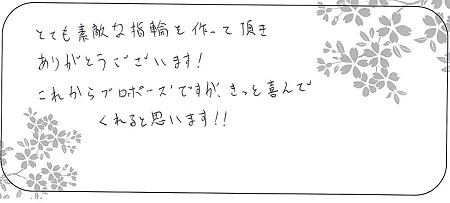 とても素敵な指輪を作って頂き
ありがとうございます!
これからプロポーズですが、きっと喜んで
くれると思います!!